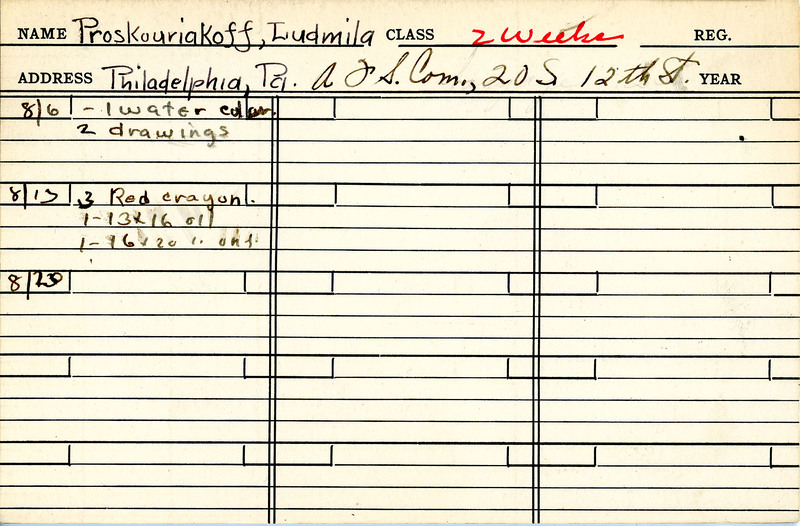 NAME Proskouriakoff, Ludmila CLASS 2 Weeks REG.
ADDRESS Philadelphia, Pa. A F S. Com., 20 S 12th St. YEAR
8/6 - 1 water color
2 drawings
8/13 3 Red crayon.
1-13x16 oil
1-16x20 "
8/20